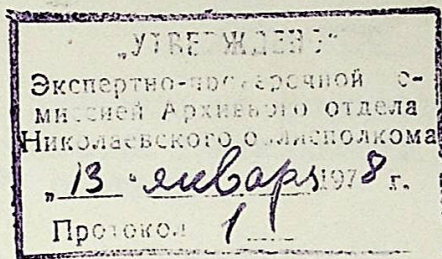 „УТВЕРЖДЕНО"
Экспертно-проверочной ко-
миссией Архивного отдела
Николаевского облисполкома
„13" января 1978 г.
Протокол 1